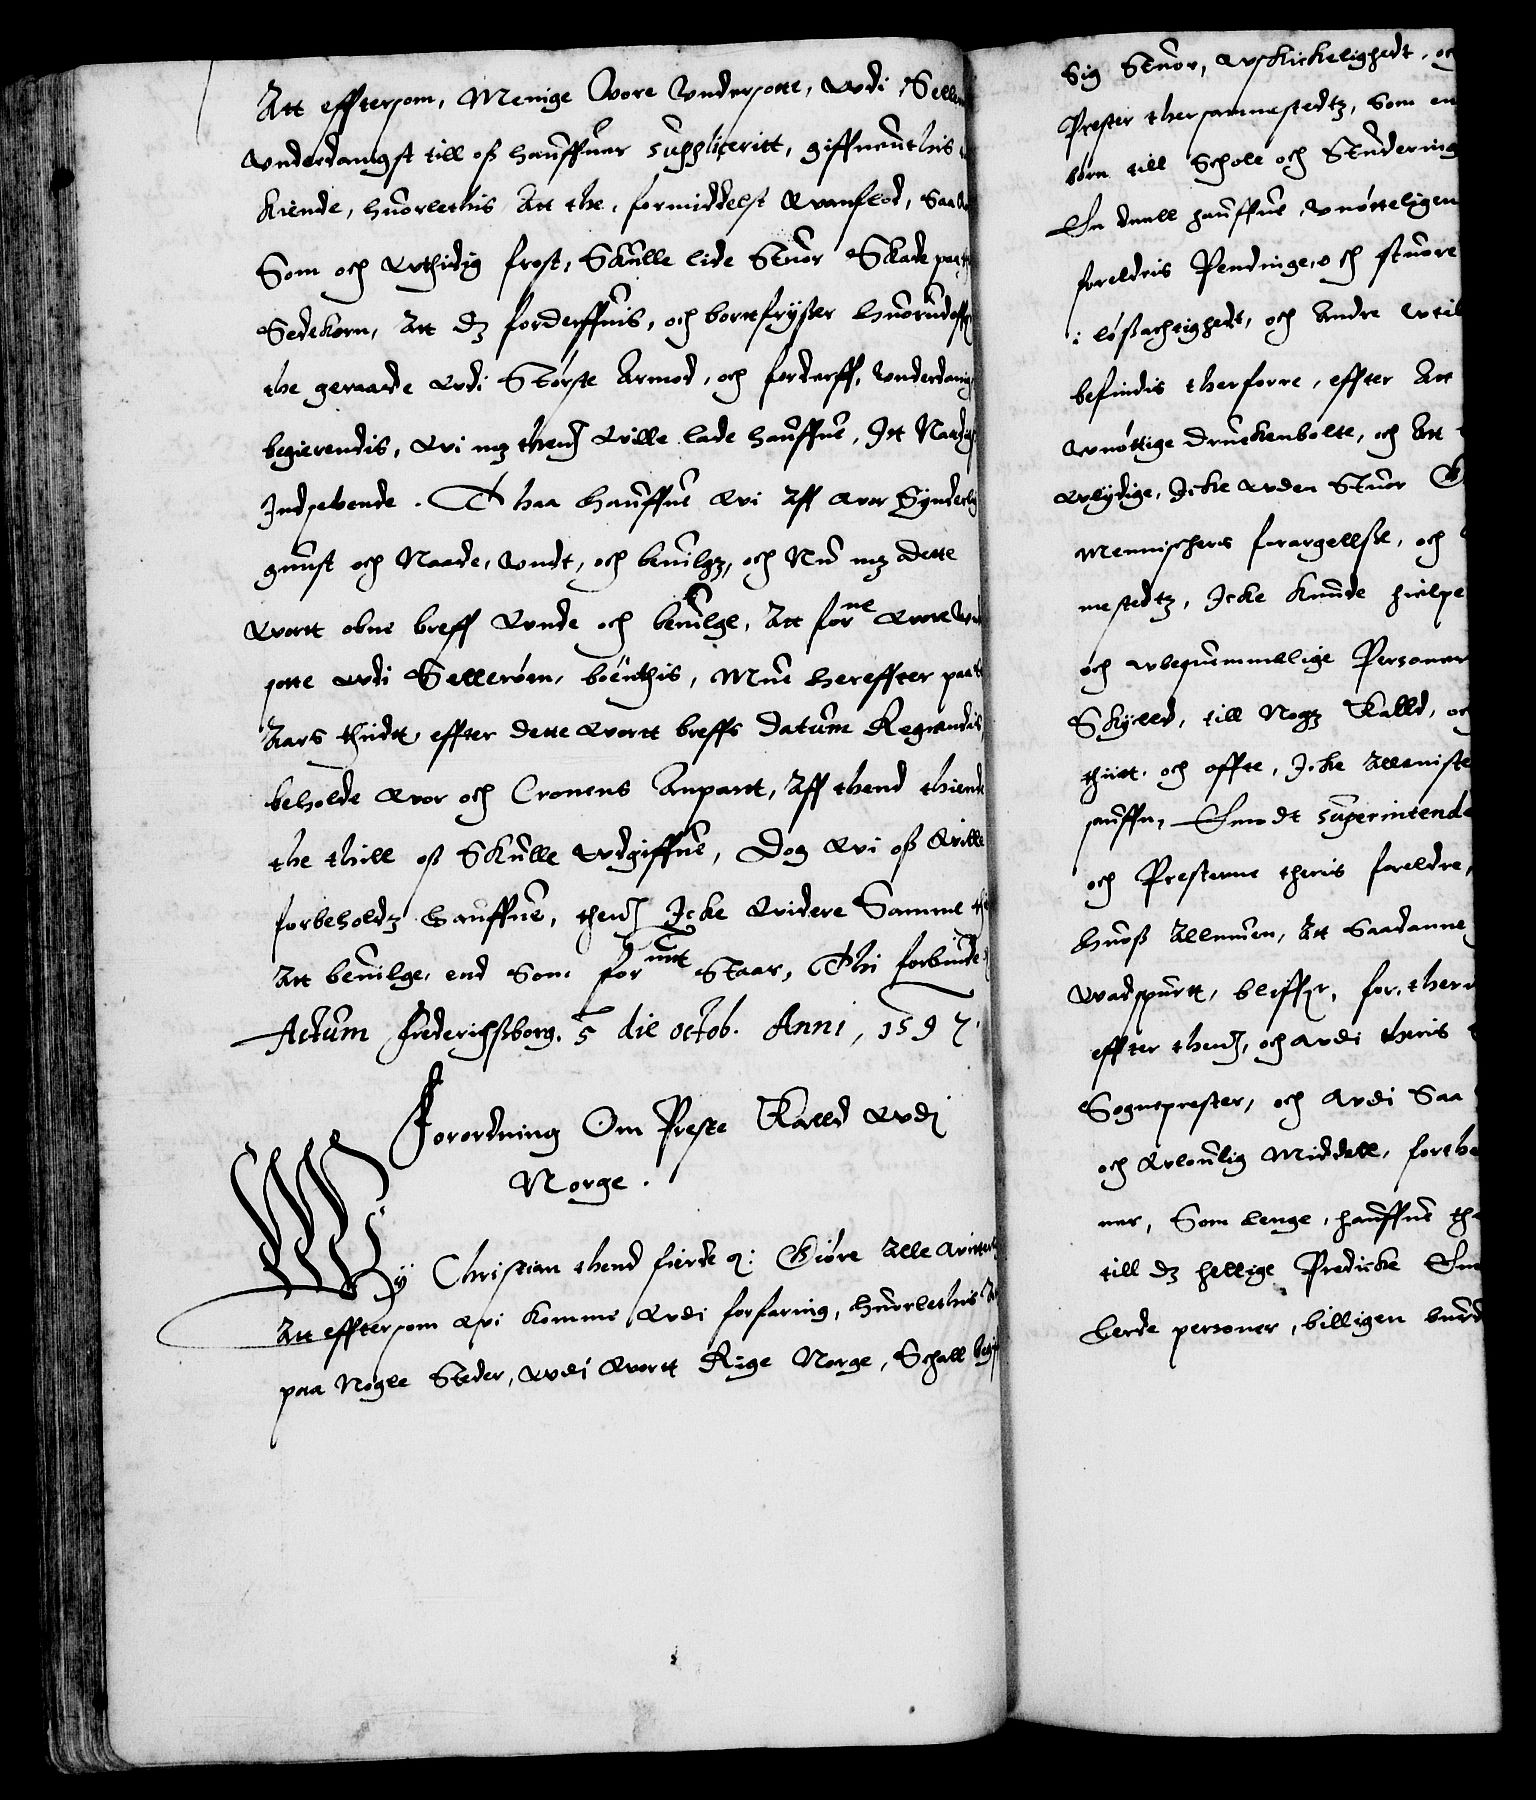 Att efftersom, Menige Vore Undersotte, Udi
Underdanigst till oß haûffuer suppliceritt, giffuendis
Kiende, huorledis Att the, formiddelst Vanflod, saa
Som och Uthidig frost, Skulle lide Stuor Skade paa
Sedekorn, Att dz forderffuis, och bortfryßer huorudoffr
the geraade Udi Største Armod, och forderff, Underdanig
begierendis, Vi mz thend Ville lade haûffue, Itt Naadig
Indseende. Thaa haûffue Vi Aff vor Synderlig
gunst och Naade, Undt, och beuilgz, och Nu mz dette
Vortt obne breff Unde och beuilge, Att forne Vore Und
sotte Udi Sellerøen, boendis, Mue hereffter paa
Aars thidt, effter dette Vortt breffs Datum Regnendis
beholde Vor och Cronens Anpart, Aff thend thiende
the thill oß Skulle Udgiffue, Dog Vi oß Ville
forbeholdz haûffue, thend Icke Videre Samme
Att beuilge, end Som forschreffuit Staar, Thi forbiude
Actum Frederichsborg. 5 die octob. Anni, 1597.
Forordning Om Preste Kalld Udi
Norge.
Wy Christian thend fierde q: Giøre Alle Vitterlig
Att efftersom Vi komme Udi forfaring, huorledis
paa Nogle Steder, Udi Vortt Rige Norge, Schall begi
Sig Stuor, Uskickelighedt, och
Prester thersammestedtz, Som en
børn till Schole och Studering
En deall haûffue, Unøtteligen
foreldris Pendinge, och stuore
i løßachtighedt, och Andre Util
befindis therforre, effter Att
Unøttige Druckenbolte, och Att
Ulydige, Icke Uden Stuor
Menischens forargellße, och
mestedtz, Icke Kunde hielpe
och Ubequemmelige Personer
Skyld, till Nogz Kalld, och
thiit. och offte, Icke Alleniste
Imodt Superintende
och Presterne theris foreldre,
huoß Allmuen, Att Saadanne
Uadspurtt, bliffr, for. ther
effter thend, och Udi theris
Sogneprester, och Udi Saa
och Ulouulig Middell, forthe
ner, Som lenge, haûffue
till dz hellige Predicke Em
Lerde personer, billigen burde